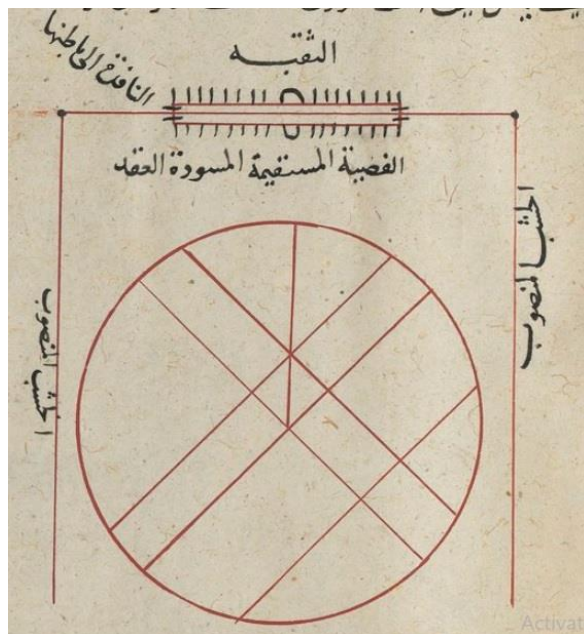 الثقبه
النافذة الى باطنها
القصبة المستقيمة المسدودة العقد
الخشب المنصوب
الخشب المنصوب
Activat